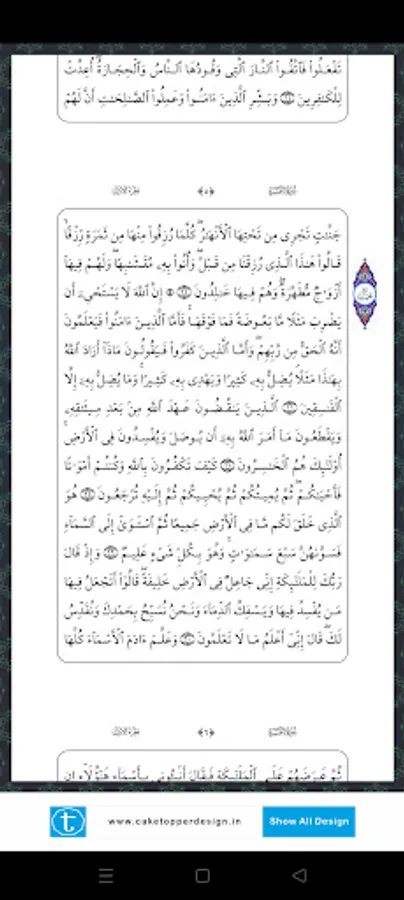 تَفْعَلُوا۟ فَٱتَّقُوا۟ ٱلنَّارَ ٱلَّتِى وَقُودُهَا ٱلنَّاسُ وَٱلْحِجَارَةُ ۖ أُعِدَّتْ
لِلْكَٰفِرِينَ وَبَشِّرِ ٱلَّذِينَ ءَامَنُوا۟ وَعَمِلُوا۟ ٱلصَّٰلِحَٰتِ أَنَّ لَهُمْ
﴿٥﴾
جَنَّٰتٍ تَجْرِى مِن تَحْتِهَا ٱلْأَنْهَٰرُ ۖ كُلَّمَا رُزِقُوا۟ مِنْهَا مِن ثَمَرَةٍ رِّزْقًا ۙ
قَالُوا۟ هَٰذَا ٱلَّذِى رُزِقْنَا مِن قَبْلُ ۖ وَأُتُوا۟ بِهِۦ مُتَشَٰبِهًا ۖ وَلَهُمْ فِيهَآ
أَزْوَٰجٌ مُّطَهَّرَةٌ ۖ وَهُمْ فِيهَا خَٰلِدُونَ ۞ إِنَّ ٱللَّهَ لَا يَسْتَحْىِۦٓ أَن
يَضْرِبَ مَثَلًا مَّا بَعُوضَةً فَمَا فَوْقَهَا ۚ فَأَمَّا ٱلَّذِينَ ءَامَنُوا۟ فَيَعْلَمُونَ
أَنَّهُ ٱلْحَقُّ مِن رَّبِّهِمْ ۖ وَأَمَّا ٱلَّذِينَ كَفَرُوا۟ فَيَقُولُونَ مَاذَآ أَرَادَ ٱللَّهُ
بِهَٰذَا مَثَلًا ۘ يُضِلُّ بِهِۦ كَثِيرًا وَيَهْدِى بِهِۦ كَثِيرًا ۚ وَمَا يُضِلُّ بِهِۦٓ إِلَّا
ٱلْفَٰسِقِينَ ٱلَّذِينَ يَنقُضُونَ عَهْدَ ٱللَّهِ مِنۢ بَعْدِ مِيثَٰقِهِۦ
وَيَقْطَعُونَ مَآ أَمَرَ ٱللَّهُ بِهِۦٓ أَن يُوصَلَ وَيُفْسِدُونَ فِى ٱلْأَرْضِ ۚ
أُو۟لَٰٓئِكَ هُمُ ٱلْخَٰسِرُونَ كَيْفَ تَكْفُرُونَ بِٱللَّهِ وَكُنتُمْ أَمْوَٰتًا
فَأَحْيَٰكُمْ ۖ ثُمَّ يُمِيتُكُمْ ثُمَّ يُحْيِيكُمْ ثُمَّ إِلَيْهِ تُرْجَعُونَ هُوَ
ٱلَّذِى خَلَقَ لَكُم مَّا فِى ٱلْأَرْضِ جَمِيعًا ثُمَّ ٱسْتَوَىٰٓ إِلَى ٱلسَّمَآءِ
فَسَوَّىٰهُنَّ سَبْعَ سَمَٰوَٰتٍ ۚ وَهُوَ بِكُلِّ شَىْءٍ عَلِيمٌ وَإِذْ قَالَ
رَبُّكَ لِلْمَلَٰٓئِكَةِ إِنِّى جَاعِلٌ فِى ٱلْأَرْضِ خَلِيفَةً ۖ قَالُوٓا۟ أَتَجْعَلُ فِيهَا
مَن يُفْسِدُ فِيهَا وَيَسْفِكُ ٱلدِّمَآءَ وَنَحْنُ نُسَبِّحُ بِحَمْدِكَ وَنُقَدِّسُ
لَكَ ۖ قَالَ إِنِّىٓ أَعْلَمُ مَا لَا تَعْلَمُونَ وَعَلَّمَ ءَادَمَ ٱلْأَسْمَآءَ كُلَّهَا
﴿٦﴾
ثُمَّ عَرَضَهُمْ عَلَى ٱلْمَلَٰٓئِكَةِ فَقَالَ أَنۢبِـُٔونِى بِأَسْمَآءِ هَٰٓؤُلَآءِ إِن
t
www.caketopperdesign.in
Show All Design